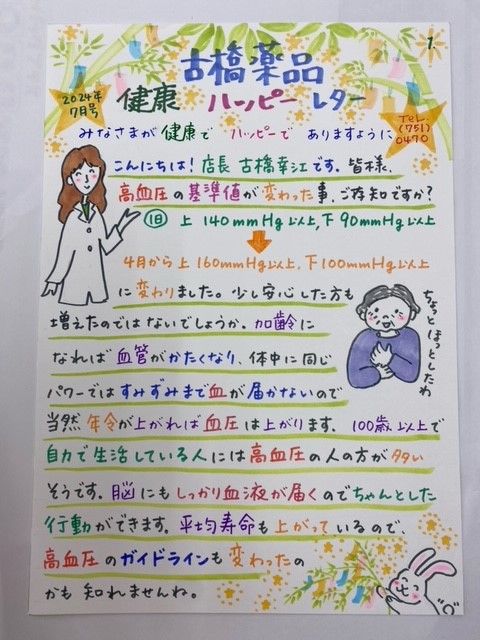 1.
古橋薬品
2024年
7月号
健康 ハッピー レター
TEL.
(751)
0470
みなさまが 健康で ハッピーで ありますように
こんにちは! 店長 古橋幸江です。皆様、
高血圧の基準値が変わった事、ご存知ですか?
旧 上 140mmHg以上,下90mmHg以上
4月から 上 160mmHg以上,下100mmHg以上
に変わりました。少し安心した方も
増えたのではないでしょうか。加齢に
なれば 血管がかたくなり、体中に同じ
パワーではすみずみまで血が届かないので
当然 年令が上がれば血圧は上がります。 100歳以上で
自力で生活している人には高血圧の人の方が多い
そうです。脳にもしっかり血液が届くのでちゃんとした
行動ができます。平均寿命も上がっているので、
高血圧のガイドラインも変わったの
かも 知れませんね。
ちょっとほっとしたわ